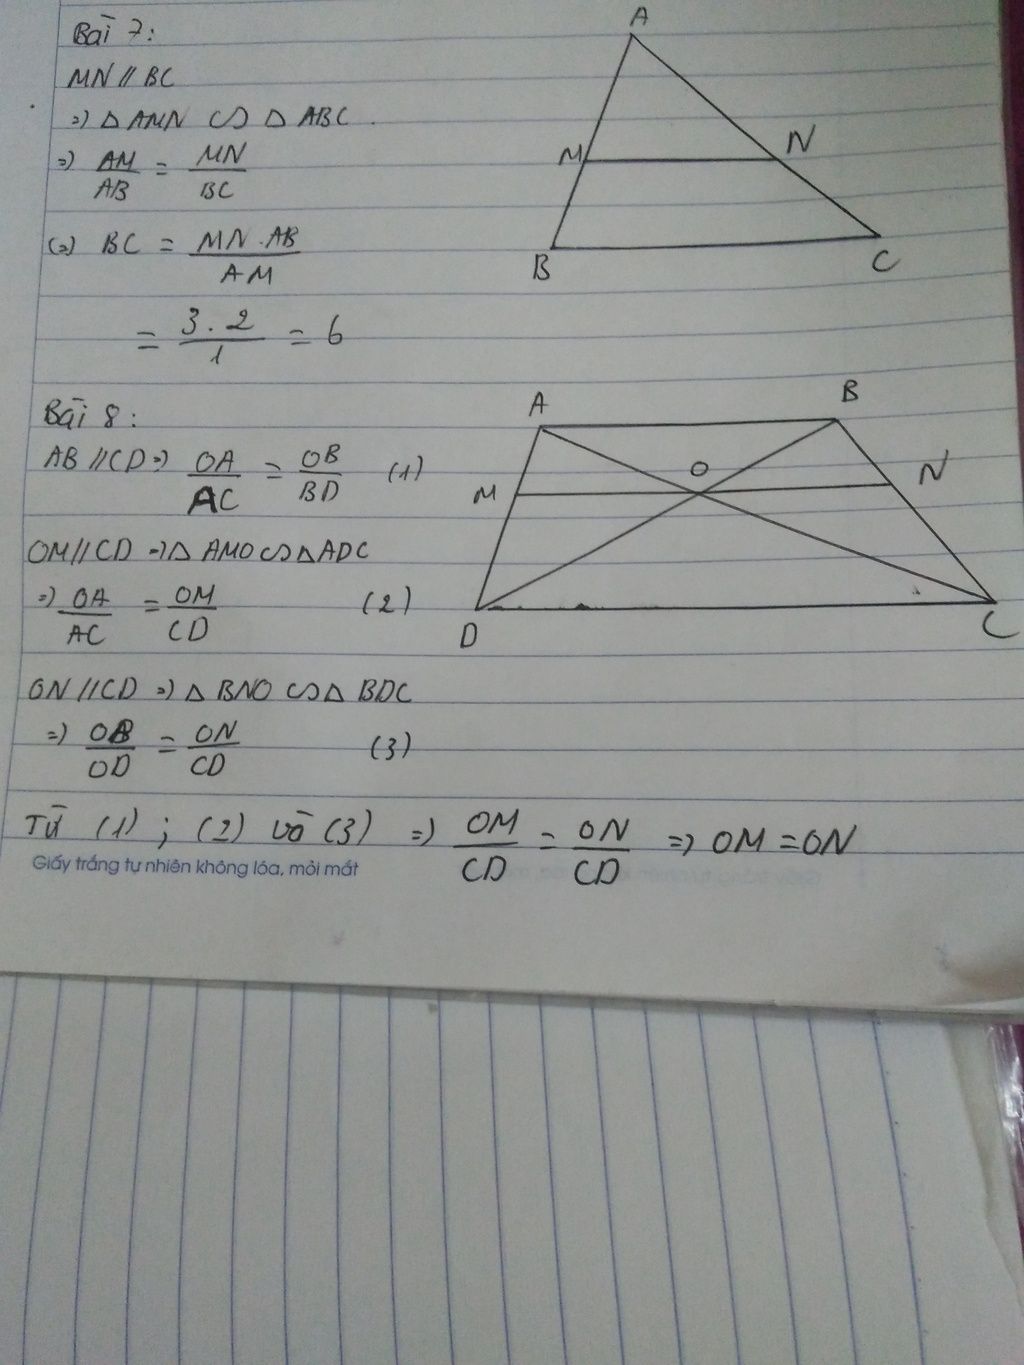 Bài 7:
MN // BC
=> △ AMN ∽ △ ABC.
=> AM/AB = MN/BC
(=) BC = MN.AB/AM
= 3.2/1 = 6
A
M
N
B
C
Bài 8:
AB // CD => OA/AC = OB/BD (1)
OM // CD => △ AMO ∽ △ ADC
=> OA/AC = OM/CD (2)
ON // CD => △ BNO ∽ △ BDC
=> OB/OD = ON/CD (3)
Từ (1) ; (2) và (3) => OM/CD = ON/CD => OM = ON
A
B
O
M
N
D
C
Giấy trắng tự nhiên không lóa, mỏi mắt